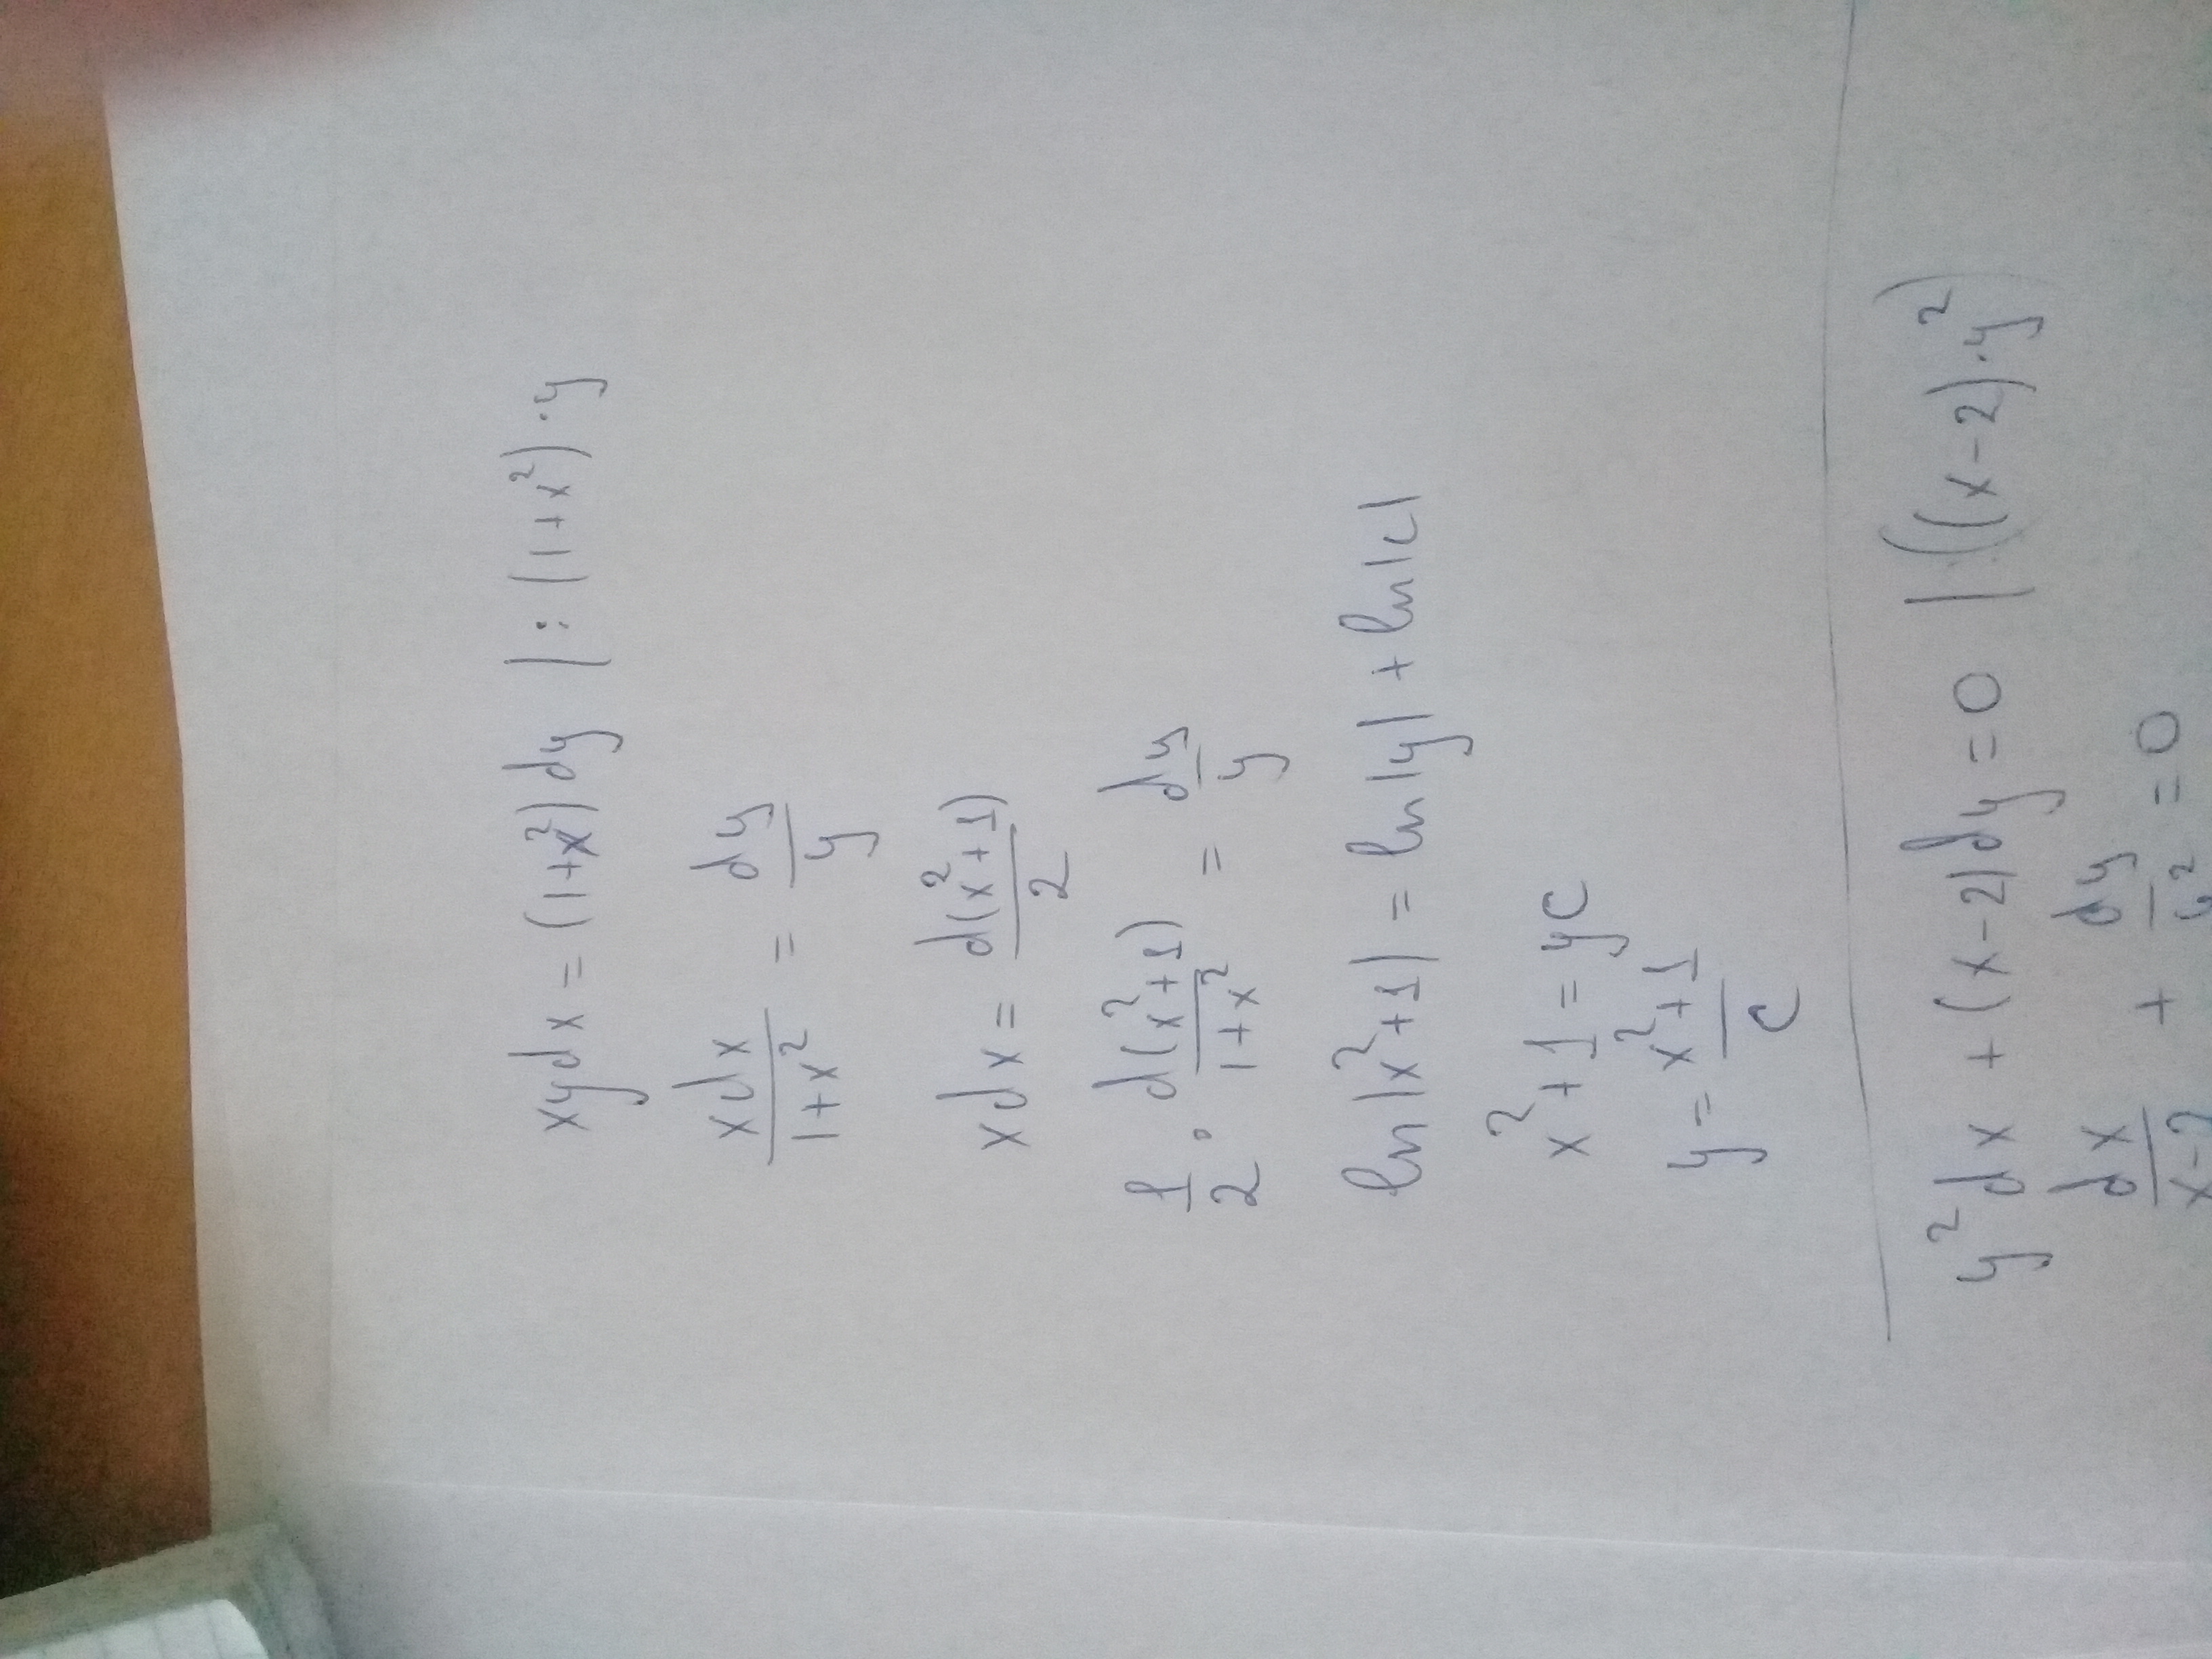 xydx = (1+x²)dy | : (1+x²)·y
xdx/(1+x²) = dy/y
xdx = d(x²+1)/2
1/2 · d(x²+1)/(1+x²) = dy/y
ln|x²+1| = ln|y| + ln|c|
x²+1 = yC
y = (x²+1)/C
y²dx + (x-2)dy = 0 | ((x-2)·y²)
dx/(x-2) + dy/y² = 0